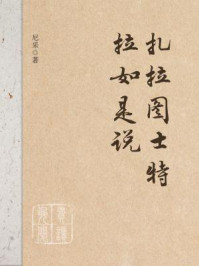 扎拉图士特
拉如是说
尼采◎著